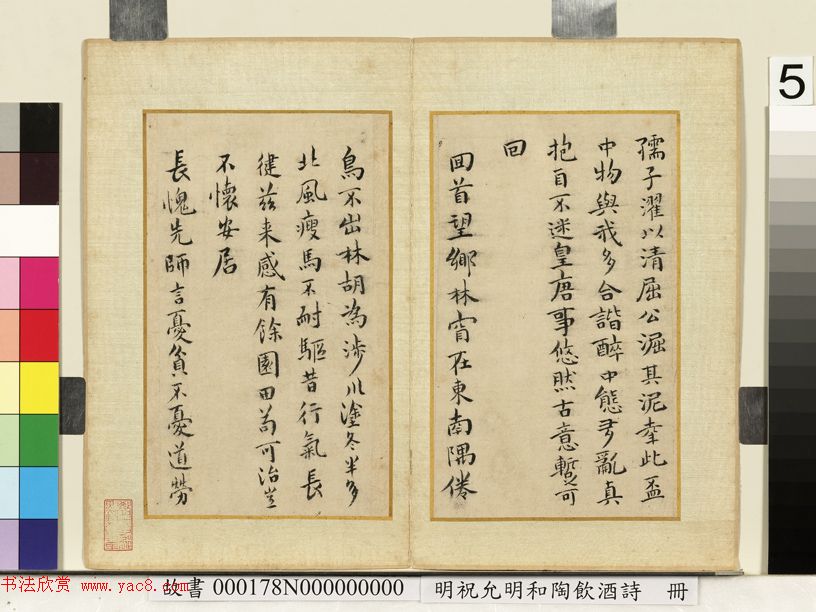 5
孺子濯以清屈公淈其泥牽此盃
中物與我多合諧醉中態多亂真
抱自不迷皇唐事悠然古意暫可
回
回首望鄉林窅在東南隅倦
鳥不出林胡為涉川塗冬半多
北風瘦馬不耐驅昔行氣長
健茲來感有餘園田苟可治豈
不懷安居
長愧先師言憂貧不憂道勞
书法欣赏 www.yac8.com
故書 000178N000000000
明祝允明和陶飲酒詩 冊